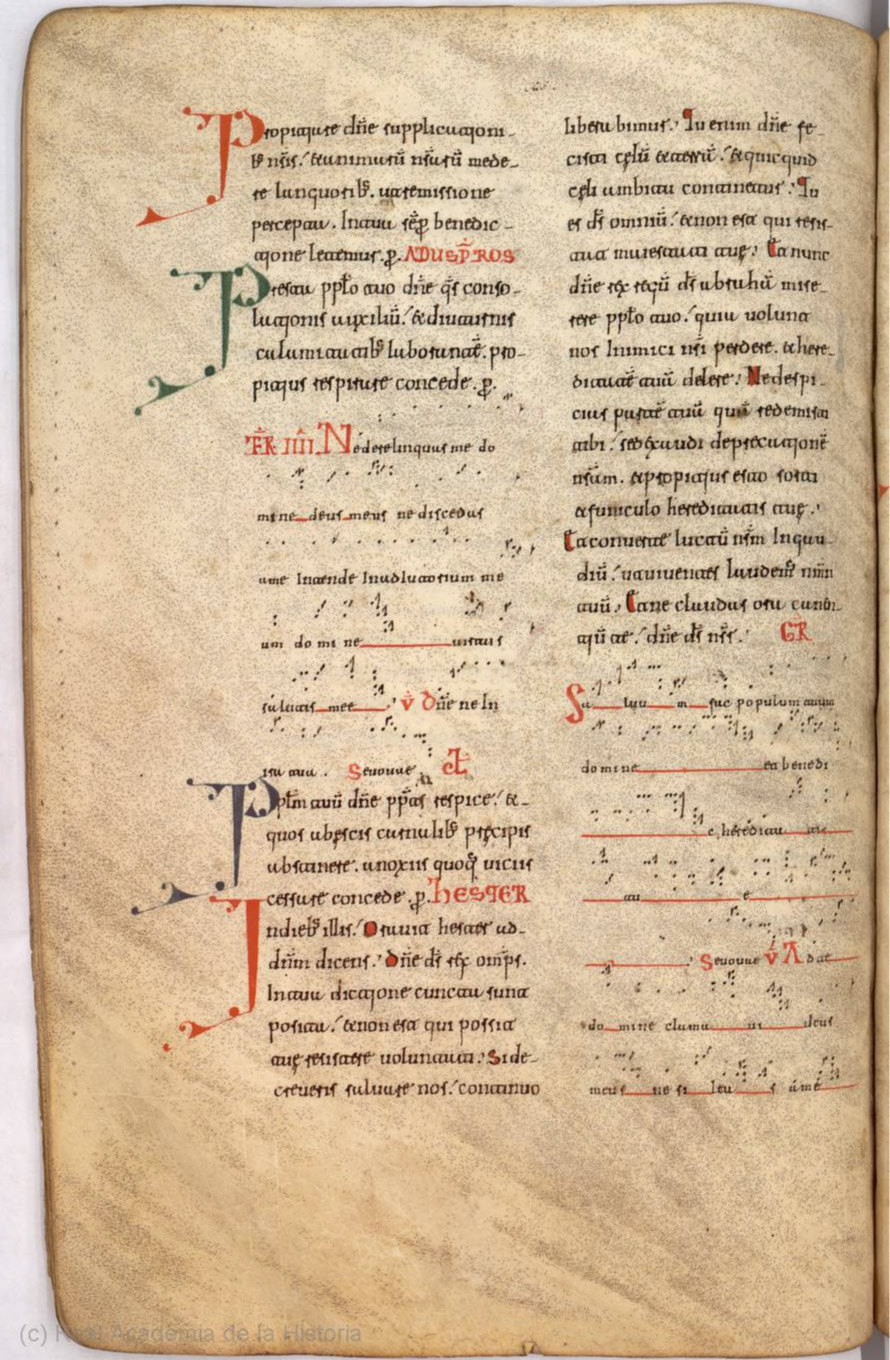 Propitiare dñe supplicationi-
bꝫ nr̃is. & animarũ nr̃arũ mede-
re languoribꝫ. ut remissione
percepta. In tua sẽp benedic-
tione letemur. p. AD UESP̃ROS
Presta pplo tuo dñe q̃s conso-
lationis auxiliũ. & diuturnis
calamitatibꝫ laborantẽ. pro-
pitius respirare concede. p.
FR̃ IIII. Ne derelinquas me do
mine deus meus ne discedas
a me Intende In adiutorium me
um domine uirtus
salutis mee V Dñe ne In
ira tua. Seuouae
Pplm tuũ dñe pp̃as respice. &
quos ab ęscis carnalibꝫ pręcipis
abstinere. a noxiis quoqꝫ uiciis
cessare concede. p. hESTER
In diebꝫ illis. Orauit hester ad
dñm dicens. Dñe ds̃ rex omp̃s.
In tua dictione cuncta sunt
posita. & non est qui possit
tuę resistere uoluntati. Si de-
creueris saluare nos. continuo
liberabimur. Tu enim dñe fe-
cisti cęlũ & terrã. & quicquid
cęli ambitu continetur. Tu
es ds̃ omniũ. & non est qui resis-
tat maiestati tuę. Et nunc
dñe rex regũ ds̃ abrahã mise-
rere pplo tuo. quia uolunt
nos Inimici nr̃i perdere. & here-
ditatẽ tuã delere. Ne despi-
cias partẽ tuã quã redemisti
tibi. sed exaudi deprecationẽ
nr̃am. & propitius esto sorti
& funiculo hereditatis tuę.
Et conuerte luctũ nr̃m In gau-
diũ. ut uiuentes laudemꝰ nm̃n
tuũ. Et ne claudas ora canti-
ũ te. dñe ds̃ nr̃s. GR
Saluum fac populum tuum
domine et benedi
c hereditati
tu e
Seuouae V Ad te
domine clamaui deus
meus ne sileas a me